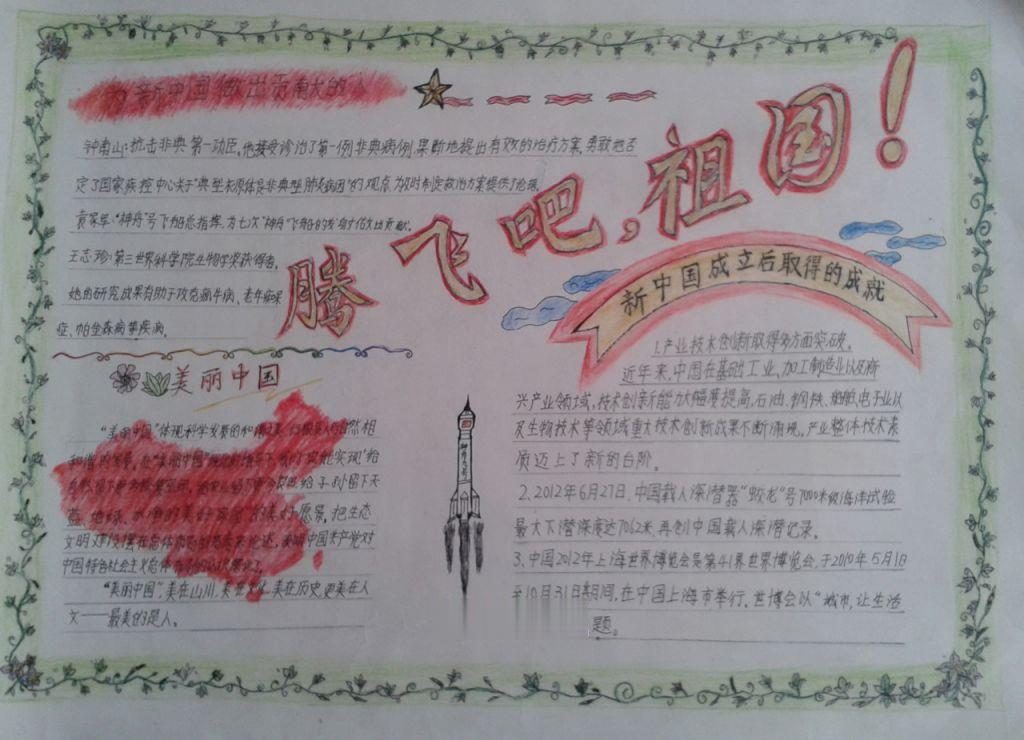 为新中国做出贡献的人
腾飞吧,祖国!
钟南山:抗击非典第一功臣,他接受诊治了第一例非典病例,果断地提出有效的治疗方案,勇敢地否
定了国家疾控中心关于"典型衣原体是非典型肺炎病因"的观点,为及时制定救治方案提供了论据。
袁家军:"神舟"号飞船总指挥,为七次"神舟"飞船的发射做出贡献。
王志珍:第三世界科学院生物学奖获得者。
她的研究成果有助于攻克疯牛病、老年痴呆
症、帕金森病等疾病。
美丽中国
"美丽中国"体现科学发展的和谐之美,人与自然相
和谐的
给子孙留下天
蓝、地绿、水净的美好家园"的美好愿景。把生态
文明建设摆在总体布局的高度来论述,表明中国共产党对
中国特色社会主义总体布局的认识深化了。
"美丽中国",美在山川,美在文化,美在历史,更美在人
文——最美的是人。
新中国成立后取得的成就
1.产业技术创新取得多方面突破。
近年来,中国在基础工业、加工制造业以及新
兴产业领域,技术创新能力大幅度提高,石油、钢铁、船舶、电子业以
及生物技术等领域重大技术创新成果不断涌现,产业整体技术素
质迈上了新的台阶。
2、2012年6月27日,中国载人深潜器"蛟龙"号7000米级海洋试验
最大下潜深度达7062米,再创中国载人深潜记录。
3、中国2012年上海世界博览会是第41界世界博览会,于2010年5月1日
至10月31日期间,在中国上海市举行。世博会以"城市,让生活
题。